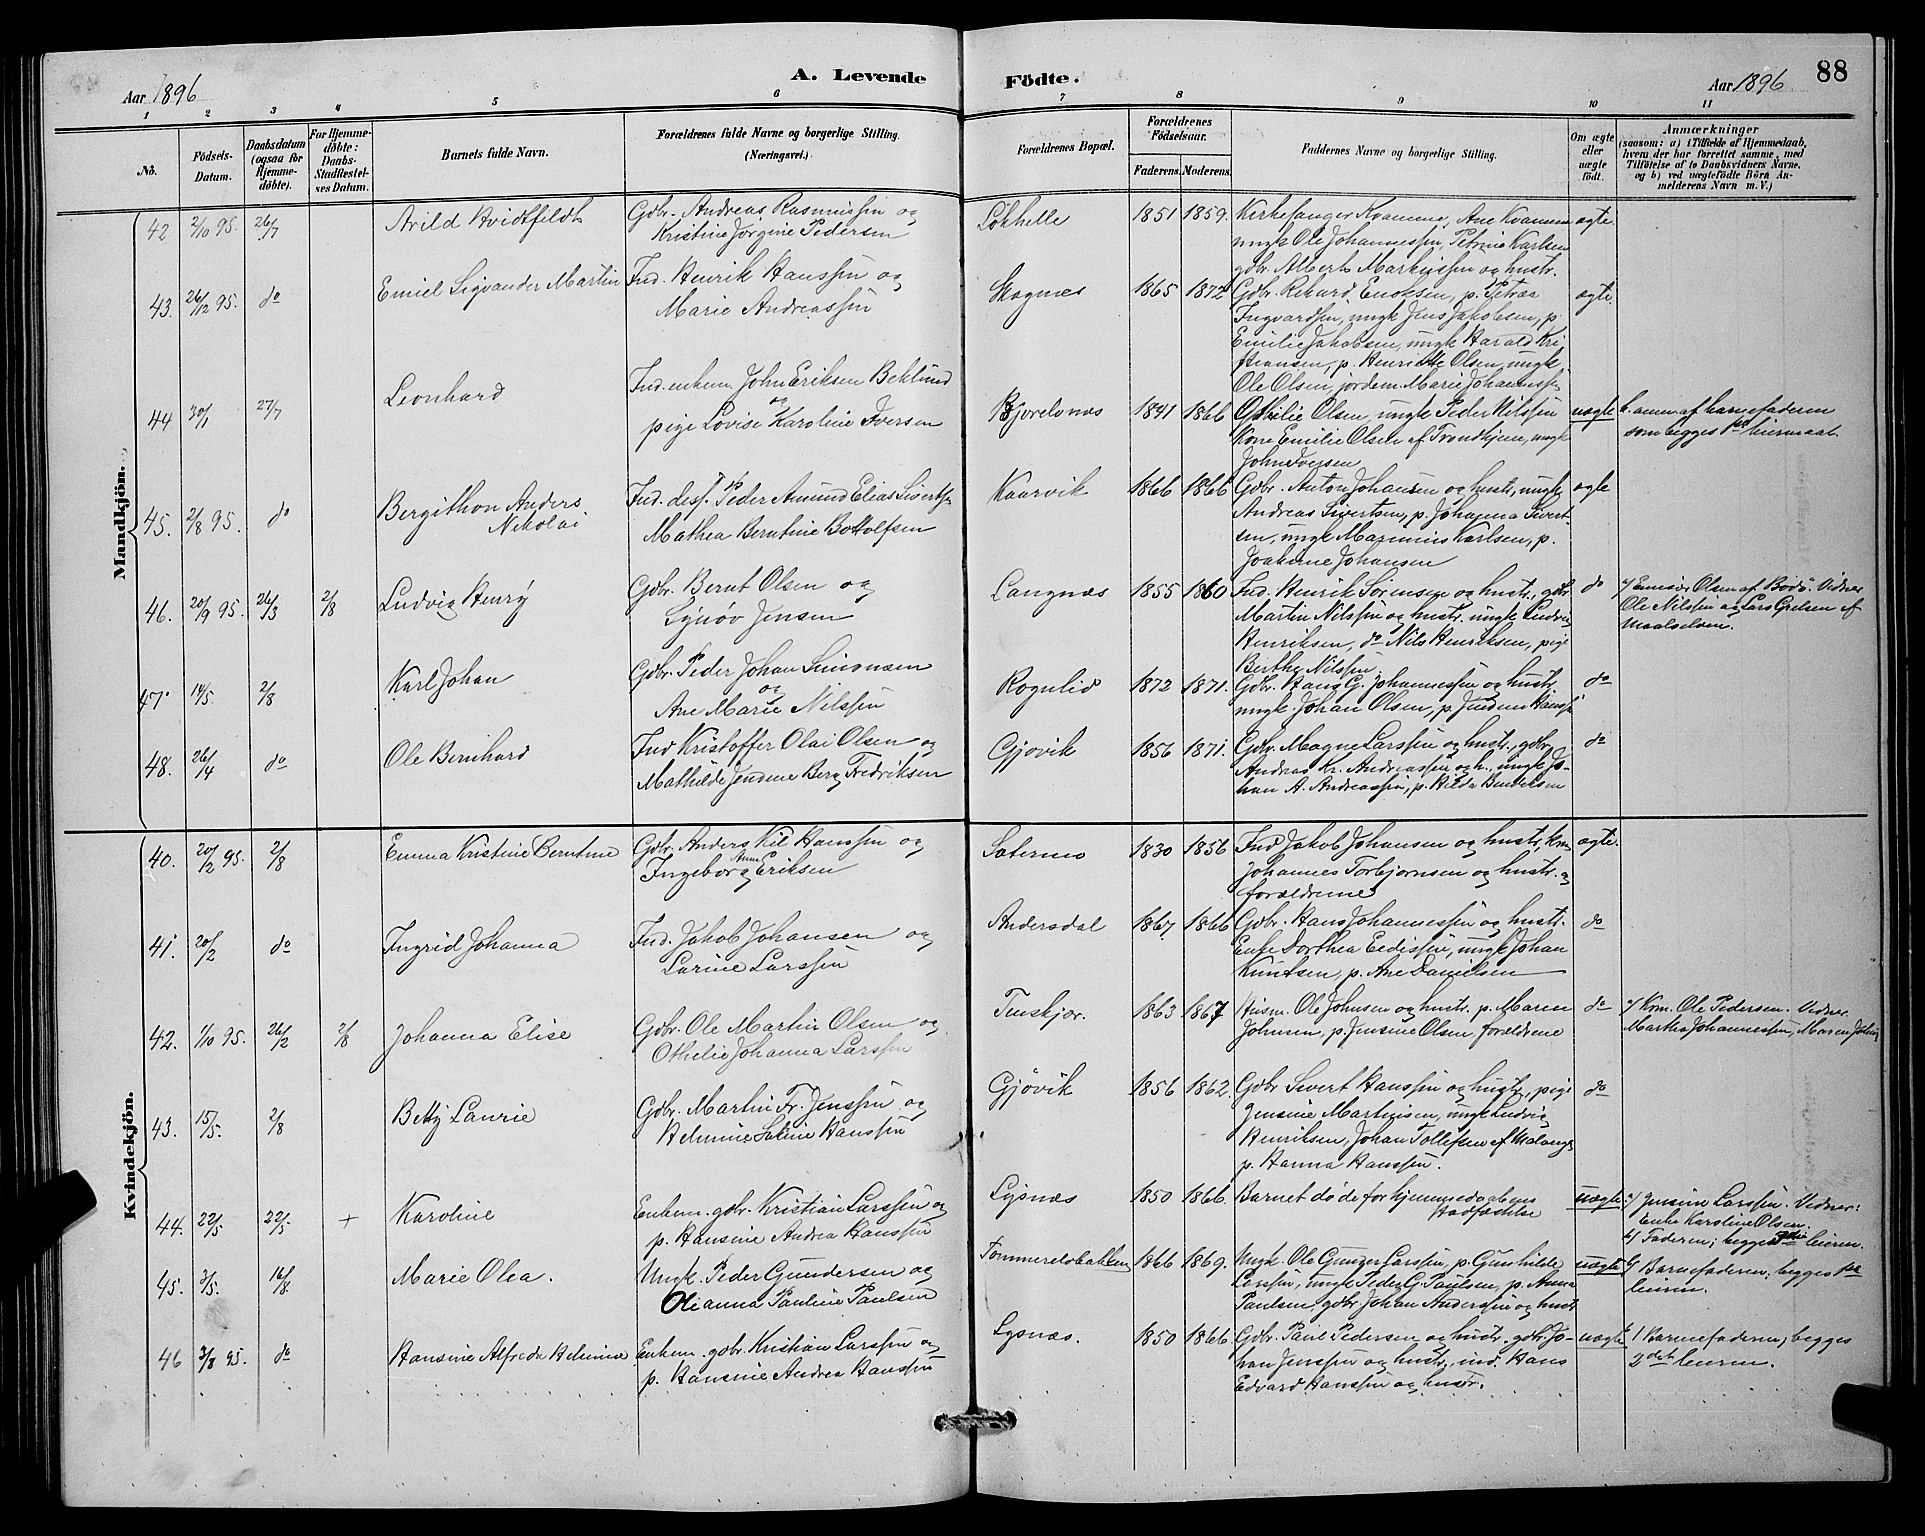 Aar 1896
A. Levende Födte.
Aar 1896
88
1 2 3 4 5 6 7 8 9 10 11
No.
Födsels-Datum.
Daabsdatum (ogsaa for Hjemme-döbte).
For Hjemme-döbte: Daabs-Stadfæstel-ses Datum.
Barnets fulde Navn.
Forældrenes fulde Navne og borgerlige Stilling. (Næringsvei.)
Forældrenes Bopæl.
Forældrenes Födselsaar.
Faderens. Moderens.
Faddernes Navne og borgerlige Stilling.
Om ægte eller uægte födt.
Anmærkninger
(saasom: a) i Tilfælde af Hjemmedaab,
hvem der har forrettet samme, med
Tilföielse af to Daabsvidners Navne,
og b) ved uægtefödte Börn An-
melderens Navn m. V.)
Mandkjön.
42 2/10 95. 26/7 Arild Hvidtfeldt Gdbr. Andreas Rasmussen og
Kristine Jørgine Pedersen
Løkhelle 1851 1859. Kirkesanger Kvamme, Ane Kvammen ægte.
ungk Ole Johannessen, Petrine Karlsen
gdbr. Albert Markussen og hustr.
43. 26/12 95. do Emiel Sigvander Martin Ind. Henrik Hanssen og
Marie Andreassen
Skognes 1865 1872 Gdbr. Rikard Enoksen, p. Petrea ægte.
Ingvardsen, ungk Jens Jakobsen, p
Emilie Jakobsen, ungk Harald Kri
stiansen, p. Henriette Olsen, ungk
Ole Olsen, jordem. Marie Johannessen
44 30/1 27/7 Leonhard Ind. enkem. John Eriksen Beklund
og
pige Lovise Karoline Iversen
1841 1866 Othilie Olsen, ungk Peder Nilssen uægte
Kone Emilie Olsen af Trondhjem, ungk
John Iversen
b. anm af barnefaderen
som begges 1ste leiermaal.
45. 2/8 95. do Bergithon Anders
Nikolai
Ind. des. Peder Amund Elias Sivertsen
Mathea Berntine Bottolfsen
Kaarvik 1866 1866 Gdbr. Anton Johansen og hustr, ungk ægte
Andreas Sivertsen, p. Johanna Sivert-
sen, ungk Marinius Karlsen, p.
Joakime Johansen
46. 20/9 95. 26/3 2/8 Ludvig Henry Gdbr. Bernt Olsen og
Synøv Jensen
Langnæs 1855 1860 Ind. Henrik Sørensen og hustr, gdbr. do
Martin Nilssen og hustr. ungk Ludvig
Henriksen, do Nils Henriksen, pige
Berthe Nilssen.
a/ Emisær Olsen af Bodø. Vidner
Ole Nilssen og Lars Grelsen af
Maalselven.
47. 14/5. 2/8 Karl Johan Gdbr. Peder Johan Simonsen
og
Ane Marie Nilssen
Rognlid 1872 1871. Gdbr. Hans G. Johannessen og hustr. do
ungk. Johan Olsen, p. Hanss
48. 26/4 do Ole Bernhard Ind Kristoffer Olai Olsen og
Mathilde Jensine Berg Fredriksen
Gjøvik 1856 1871. Gdbr. Magne Larssen og hustr, gdbr do
Andreas Kr. Andreassen og h., ungk Jo-
han A. Andreassen, p. Hilda Bendiksen
Kvindekjön.
40. 20/2 95. 2/8 Emma Kristine Berntine Gdbr. Anders Nil Hanssen og
Ingeborg Anna Eriksen
Sæternes 1830 1856 Ind Jakob Johansen og hustr, ægte.
Johannes Torbjørnsen og hustr. og
forældrene
41. 20/2 do Ingrid Johanna Ind. Jakob Johansen og
Larine Larssen
Andersdal 1867 1866 Gdbr. Hans Johannessen og hustr. do
Enke Dorthea Eedissen, ungk Johan
Knutsen, p. Ane Danielsen
42. 1/10 95. 26/2 2/8 Johanna Elise Gdbr. Ole Martin Olsen og
Othelie Johanna Larssen
Tenskjær. 1863 1867 Husm. Ole Johnsen og hustr. p. Maren do
Johnsen, p Jensine Olsen forældrene
a/ Krm. Ole Pedersen. Vidner
Martha Johannessen, Maren Johns
43. 15/5. 2/8 Betty Laurie Gdbr. Martin Fr. Jenssen og
Helmine Sabine Hanssen
Gjövik 1856 1862. Gdbr Sivert Hanssen og hustr, pige do
Jensine Martinsen, ungk Ludvig
Henriksen, Johan Tollefsen af Malang
p. Hanna Hanssen.
44. 22/5 22/5. + Karoline Enkem. gdbr. Kristian Larssen og
p. Hansine Andrea Hanssen
Lysnæs 1850 1866. Barnet døde før hjemmedaabens uægte
stadfæstelse
a/ Jensine Larssen. Vidner:
Enke Karoline Olsen.
b/ Faderen; begges leierm.
45. 3/5. 16/8 Marie Olea. Ungk. Peder Gundersen og
Olianna Pauline Paulsen
Tømmerelvbakken 1866 1869. Ungk. Ole Gunder Larssen, p. Gunhilde uægte
Larssen, ungk Peder G. Paulsen, p. Anna
Paulsen, gdbr Johan Anderssen og hust
b/ Barnefaderen; begges 1ste
leierm.
46 3/8 95. do Hansine Alfreda Helmine Enkem. gdbr. Kristian Larssen og
p. Hansine Andrea Hanssen
Lysnæs. 1850 1866. Gdbr. Paul Pedersen og hustr. gdbr. Jo- uægte
han Jenssen og hustr, ind. Hans
Edvard Hanssen og hustr.
Barnefaderen; begges
2det leierm.